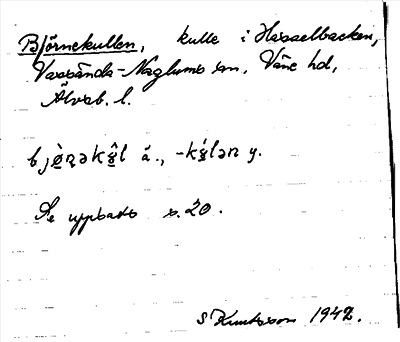 Björnekullen, kulle i Hasselbacken,
Vassända-Naglums sn. Väne hd,
Älvsb. l.
bjø̀ɳəkɣ̂l á., -kɣ́lən y.
Se uppsats s. 20.
S Knutsson 1942.